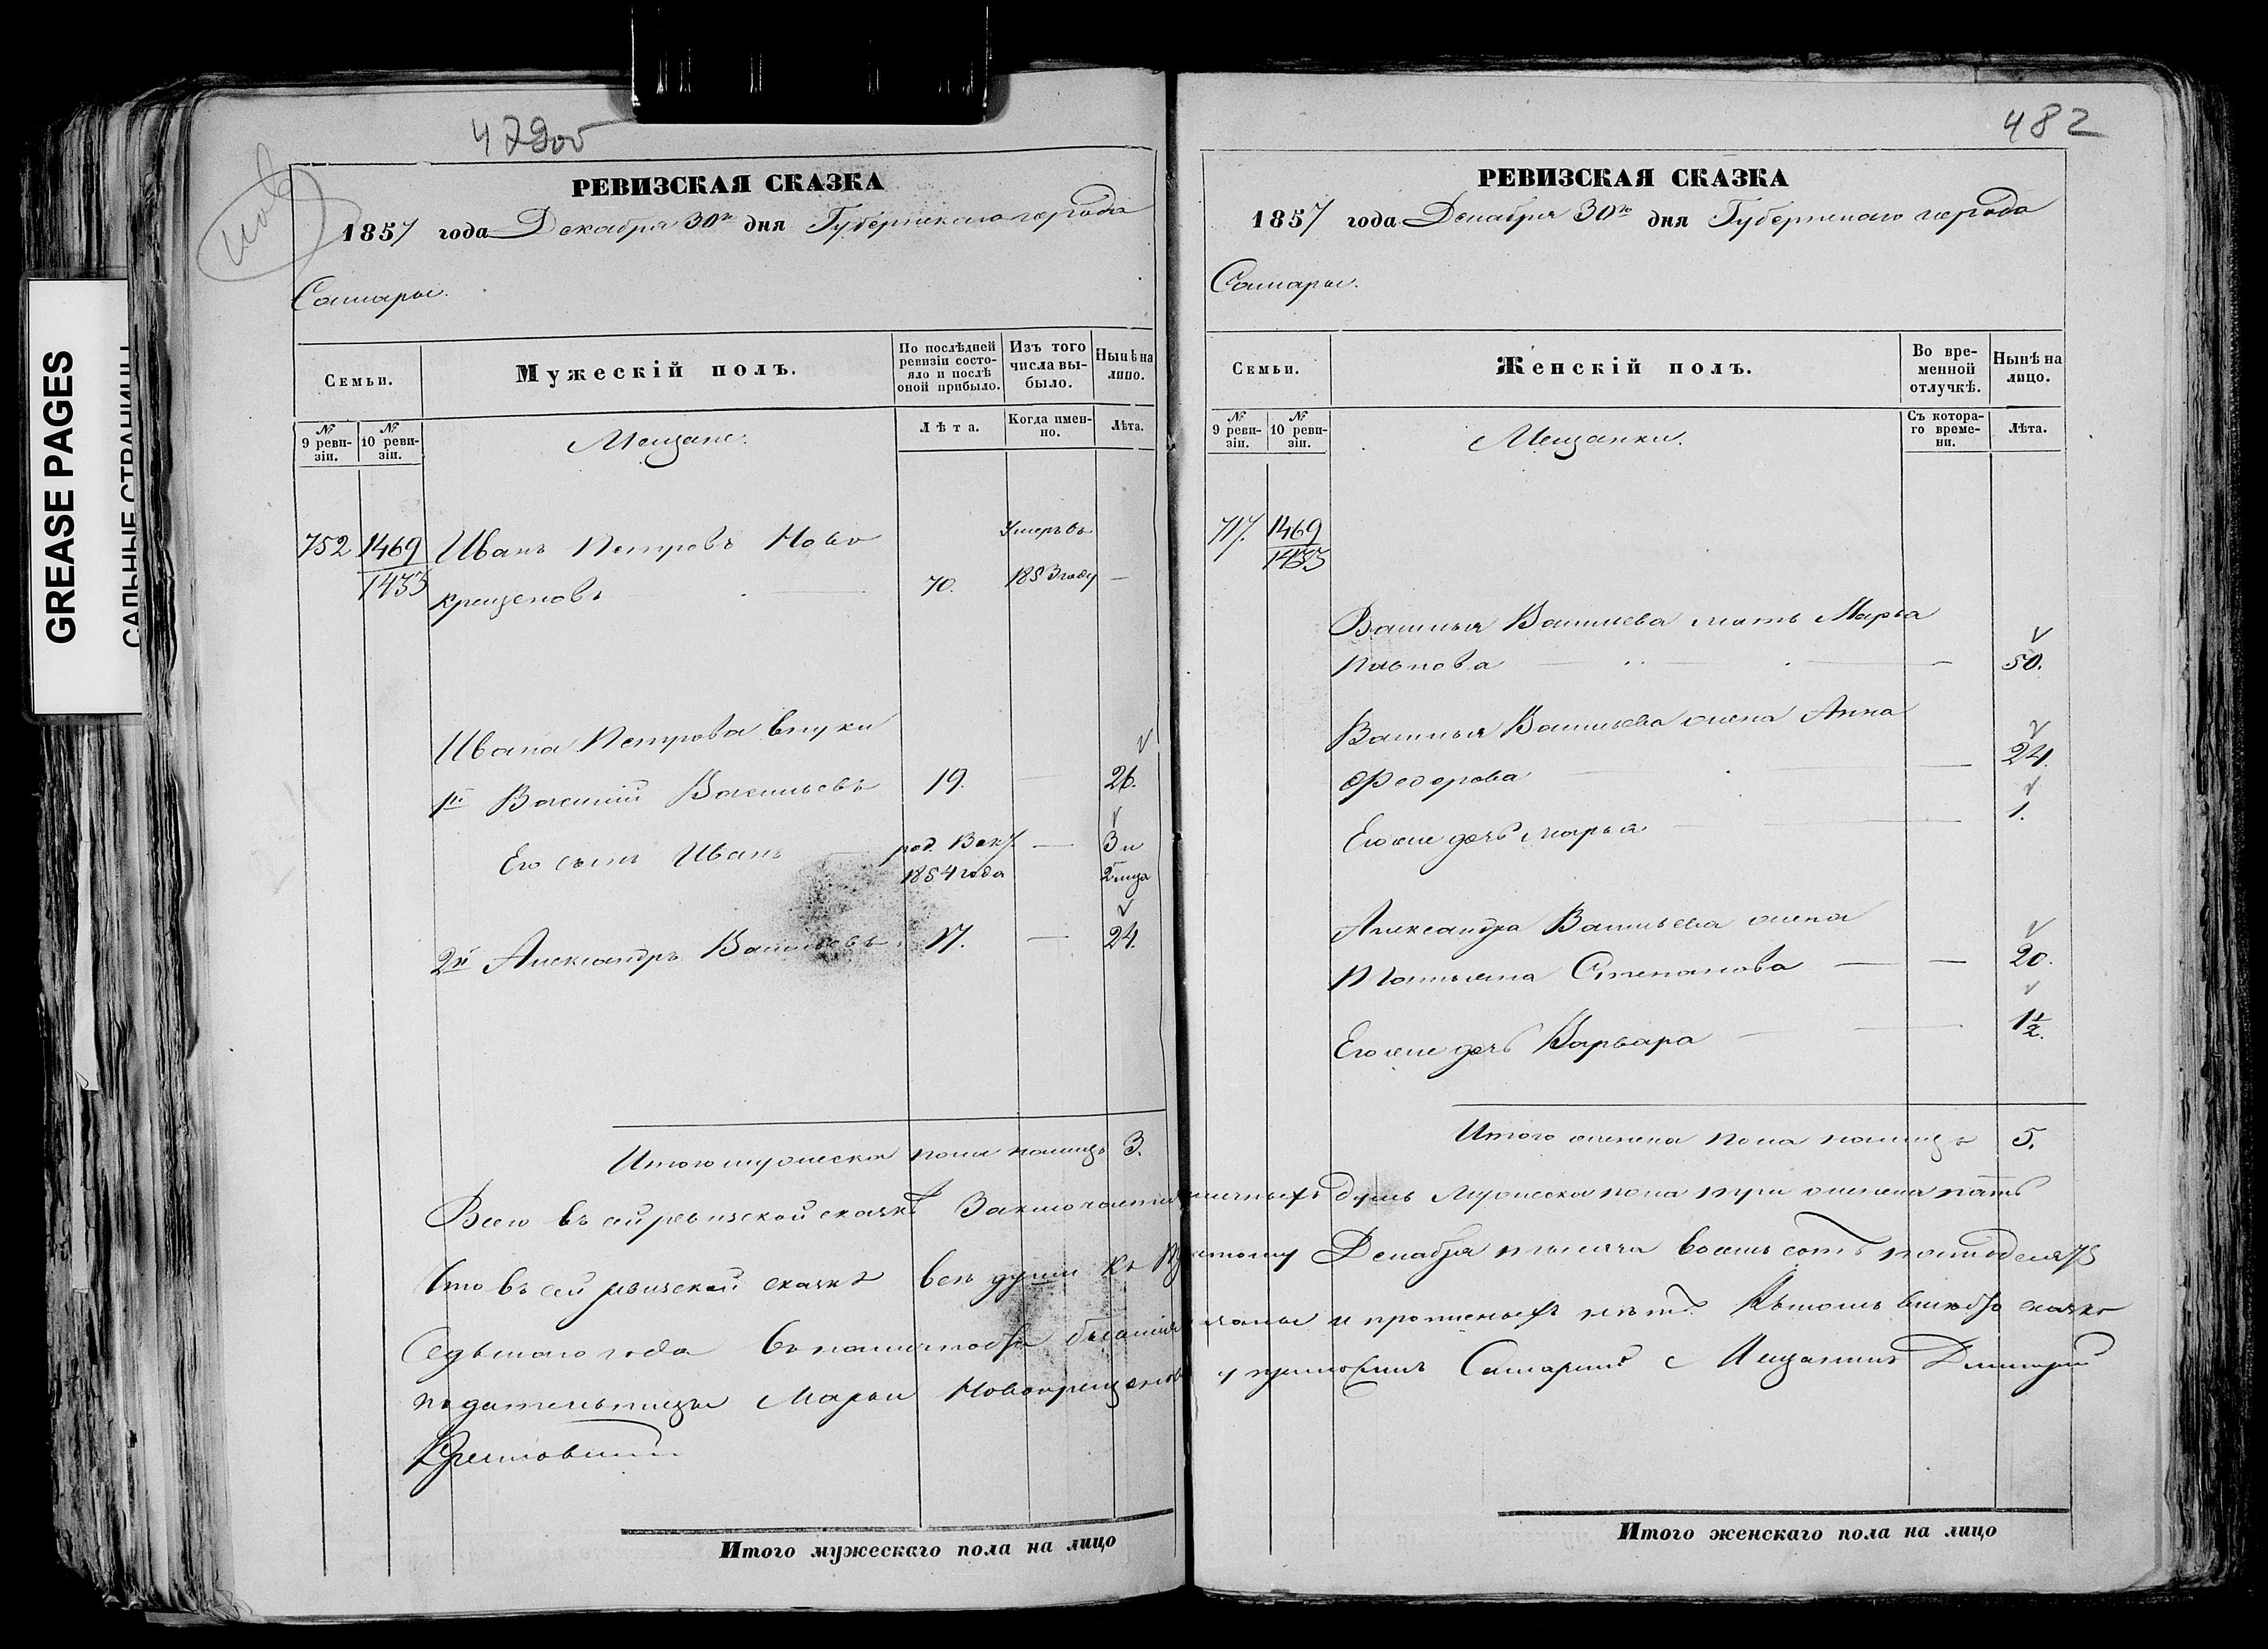 GREASE PAGES
САЛЬНЫЕ СТРАНИЦЫ
479об
РЕВИЗСКАЯ СКАЗКА
1857 года Декабря 30го дня Губернскаго города
Самары.
Семьи.
Мужескій полъ.
По послѣдней ревизіи состояло и послѣ оной прибыло.
Изъ того числа выбыло.
Нынѣ на лицо.
№ 9 ревизіи.
№ 10 ревизіи.
Мещане.
Лѣта.
Когда именно.
Лѣта.
752 1469 Иванъ Петровъ Ново Умеръ въ
1433 крещеновъ 70. 1853 году —
Ивана Петрова внуки
1й Василий Васильевъ 19. — 26.
Его сынъ Иванъ род. В — 3 и
1854 года 2 мца
2й Александръ Васильевъ 17. — 24.
Итого мужеска пола налицо 3.
482
РЕВИЗСКАЯ СКАЗКА
1857 года Декабря 30го дня Губернскаго города
Самары.
Семьи.
Женскій полъ.
Во временной отлучкѣ.
Нынѣ на лицо.
№ 9 ревизіи.
№ 10 ревизіи.
Мещанки.
Съ котораго времени.
Лѣта.
717. 1469
1433
Василья Васильева мать Марья
50.
Василья Васильева жена Анна
Федорова — 24.
Его же дочь Марья — 1.
Александра Васильева жена
Татьяна Степанова — 20.
Его же дочь Варвара — 1½.
Итого женска пола налицо 5.
Всего въ сей ревизской сказкѣ Заключается наличныхъ душъ Мужеска пола три женска пять
Что въ сей ревизской сказкѣ всѣ души къ Декабря тысяча восемь сотъ пятьдесятъ
Седьмого года и прописныхъ нѣтъ. Въ томъ сказке
подательницы Марьи Новокрещеновой Самарий Мещанинъ Дмитрий
Итого мужескаго пола на лицо
Итого женскаго пола на лицо